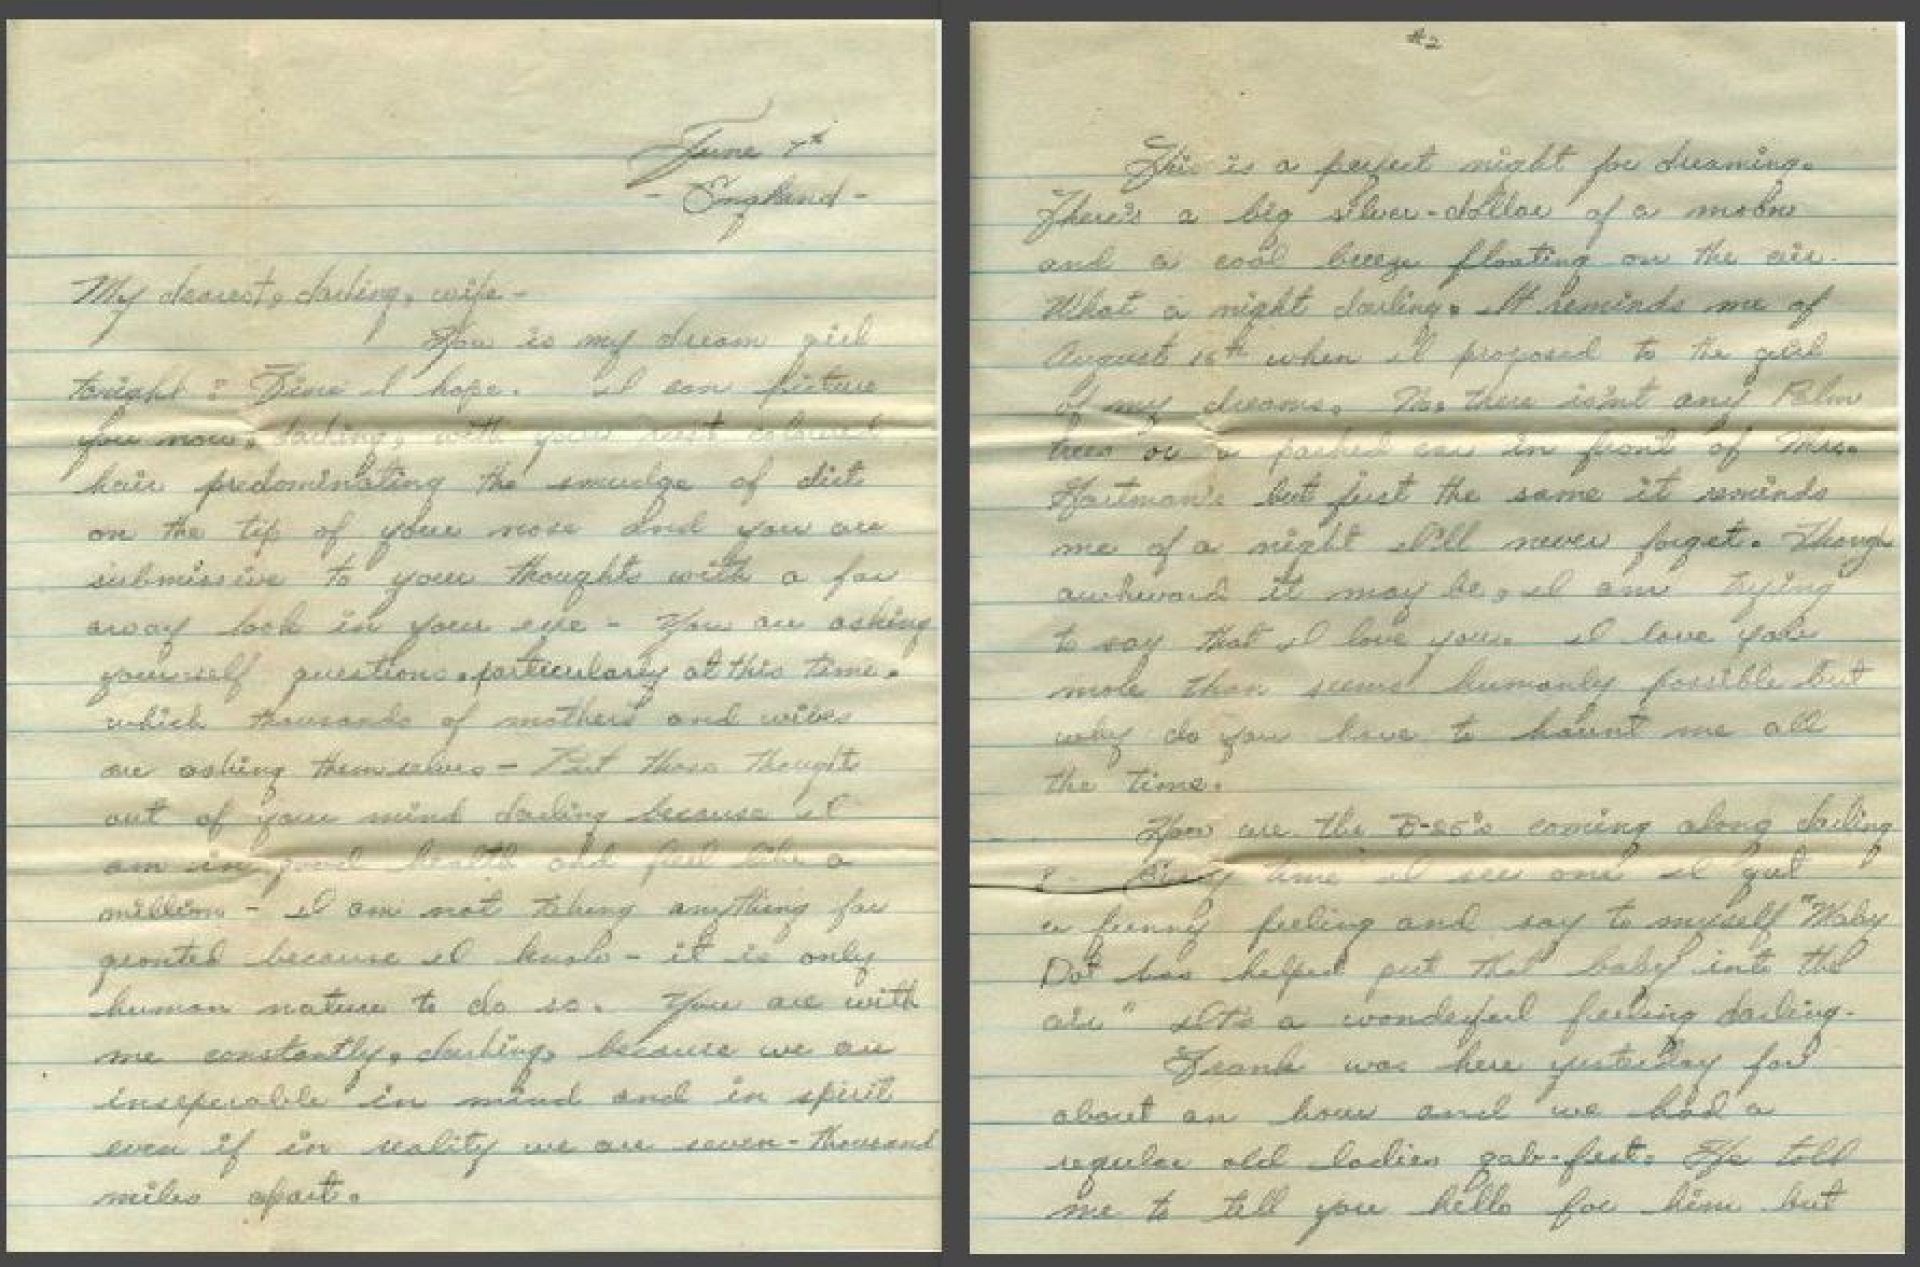 June 7th
- England -
My dearest, darling, wife -
How is my dream girl
tonight? Fine I hope. I can picture
you now, darling, with your rust coloured
hair predominating the smudge of dirt
on the tip of your nose and you are
submissive to your thoughts with a far
away look in your eye - You are asking
yourself questions, particularly at this time,
which thousands of mothers and wives
are asking themselves - Put those thoughts
out of your mind darling because I
am in good health and feel like a
million - I am not taking anything for
granted because I know - it is only
human nature to do so. You are with
me constantly, darling, because we are
inseperable in mind and in spirit
even if in reality we are seven-thousand
miles apart.
#2
This is a perfect night for dreaming.
There's a big silver-dollar of a moon
and a cool breeze floating on the air.
What a night darling. It reminds me of
August 16th when I proposed to the girl
of my dreams. No, there isn't any Palm
trees or a parked car in front of Mrs.
Hartman's but just the same it reminds
me of a night I'll never forget. Though
awkward it may be, I am trying
to say that I love you. I love you
more than seems humanly possible but
why do you have to haunt me all
the time.
How are the B-25's coming along darling
? - Every time I see one I get
a funny feeling and say to myself "Maby
Dot has helped put that baby into the
air" It's a wonderful feeling darling.
Frank was here yesterday for
about an hour and we had a
regular old ladies gab-fest. He told
me to tell you hello for him but